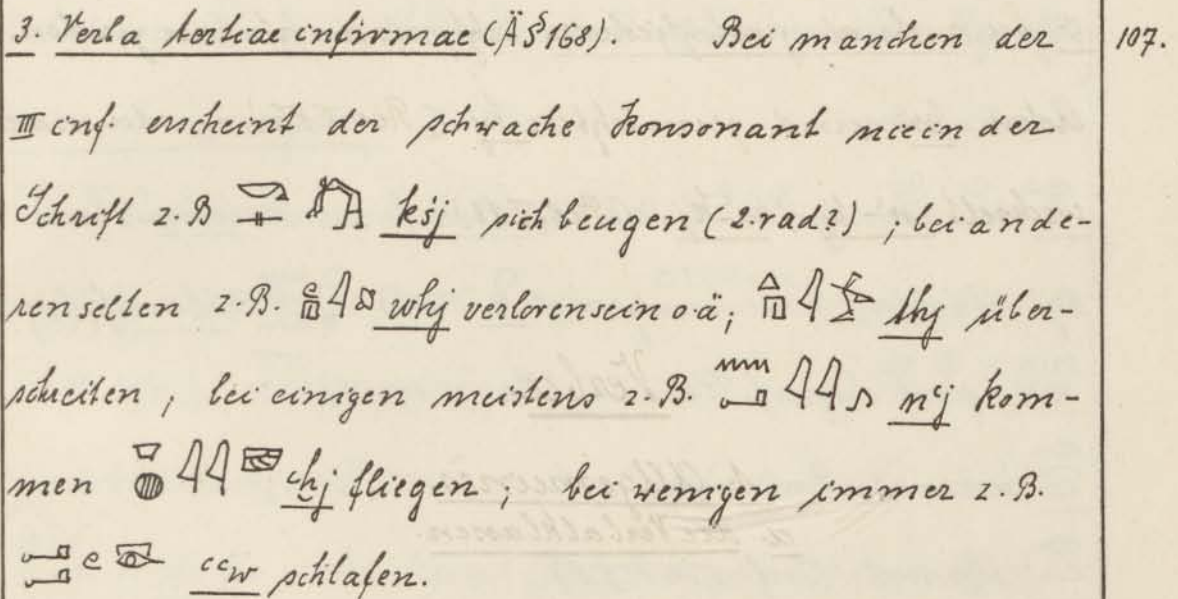 3. Verba tertiae infirmae (Ä § 168). Bei manchen der 107.
III inf. erscheint der schwache Konsonant nie in der
Schrift z. B. ksj sich beugen (2. rad?); bei ande-
ren selten z. B. whj verloren sein o. ä; thj über-
schreiten; bei einigen meistens z. B. nꜥj kom-
men ꜥḫj fliegen; bei wenigen immer z. B.
ꜥꜥw schlafen.